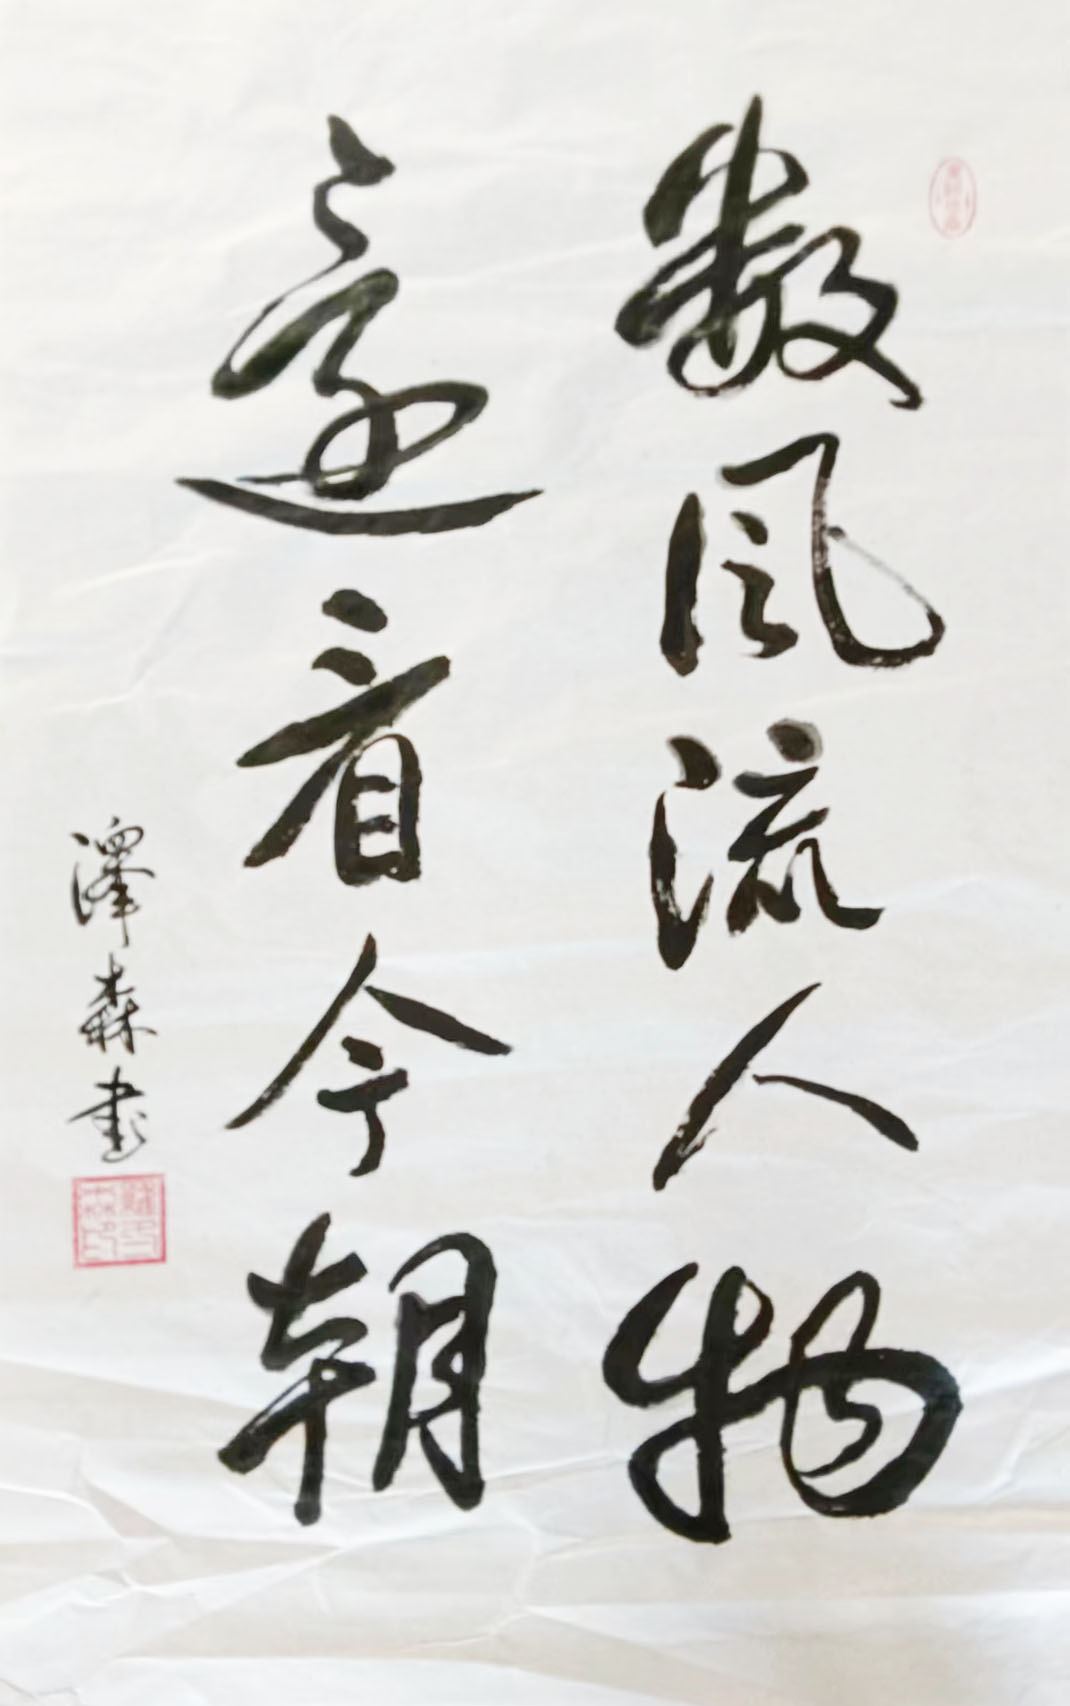 數風流人物
還看今朝
澤森書